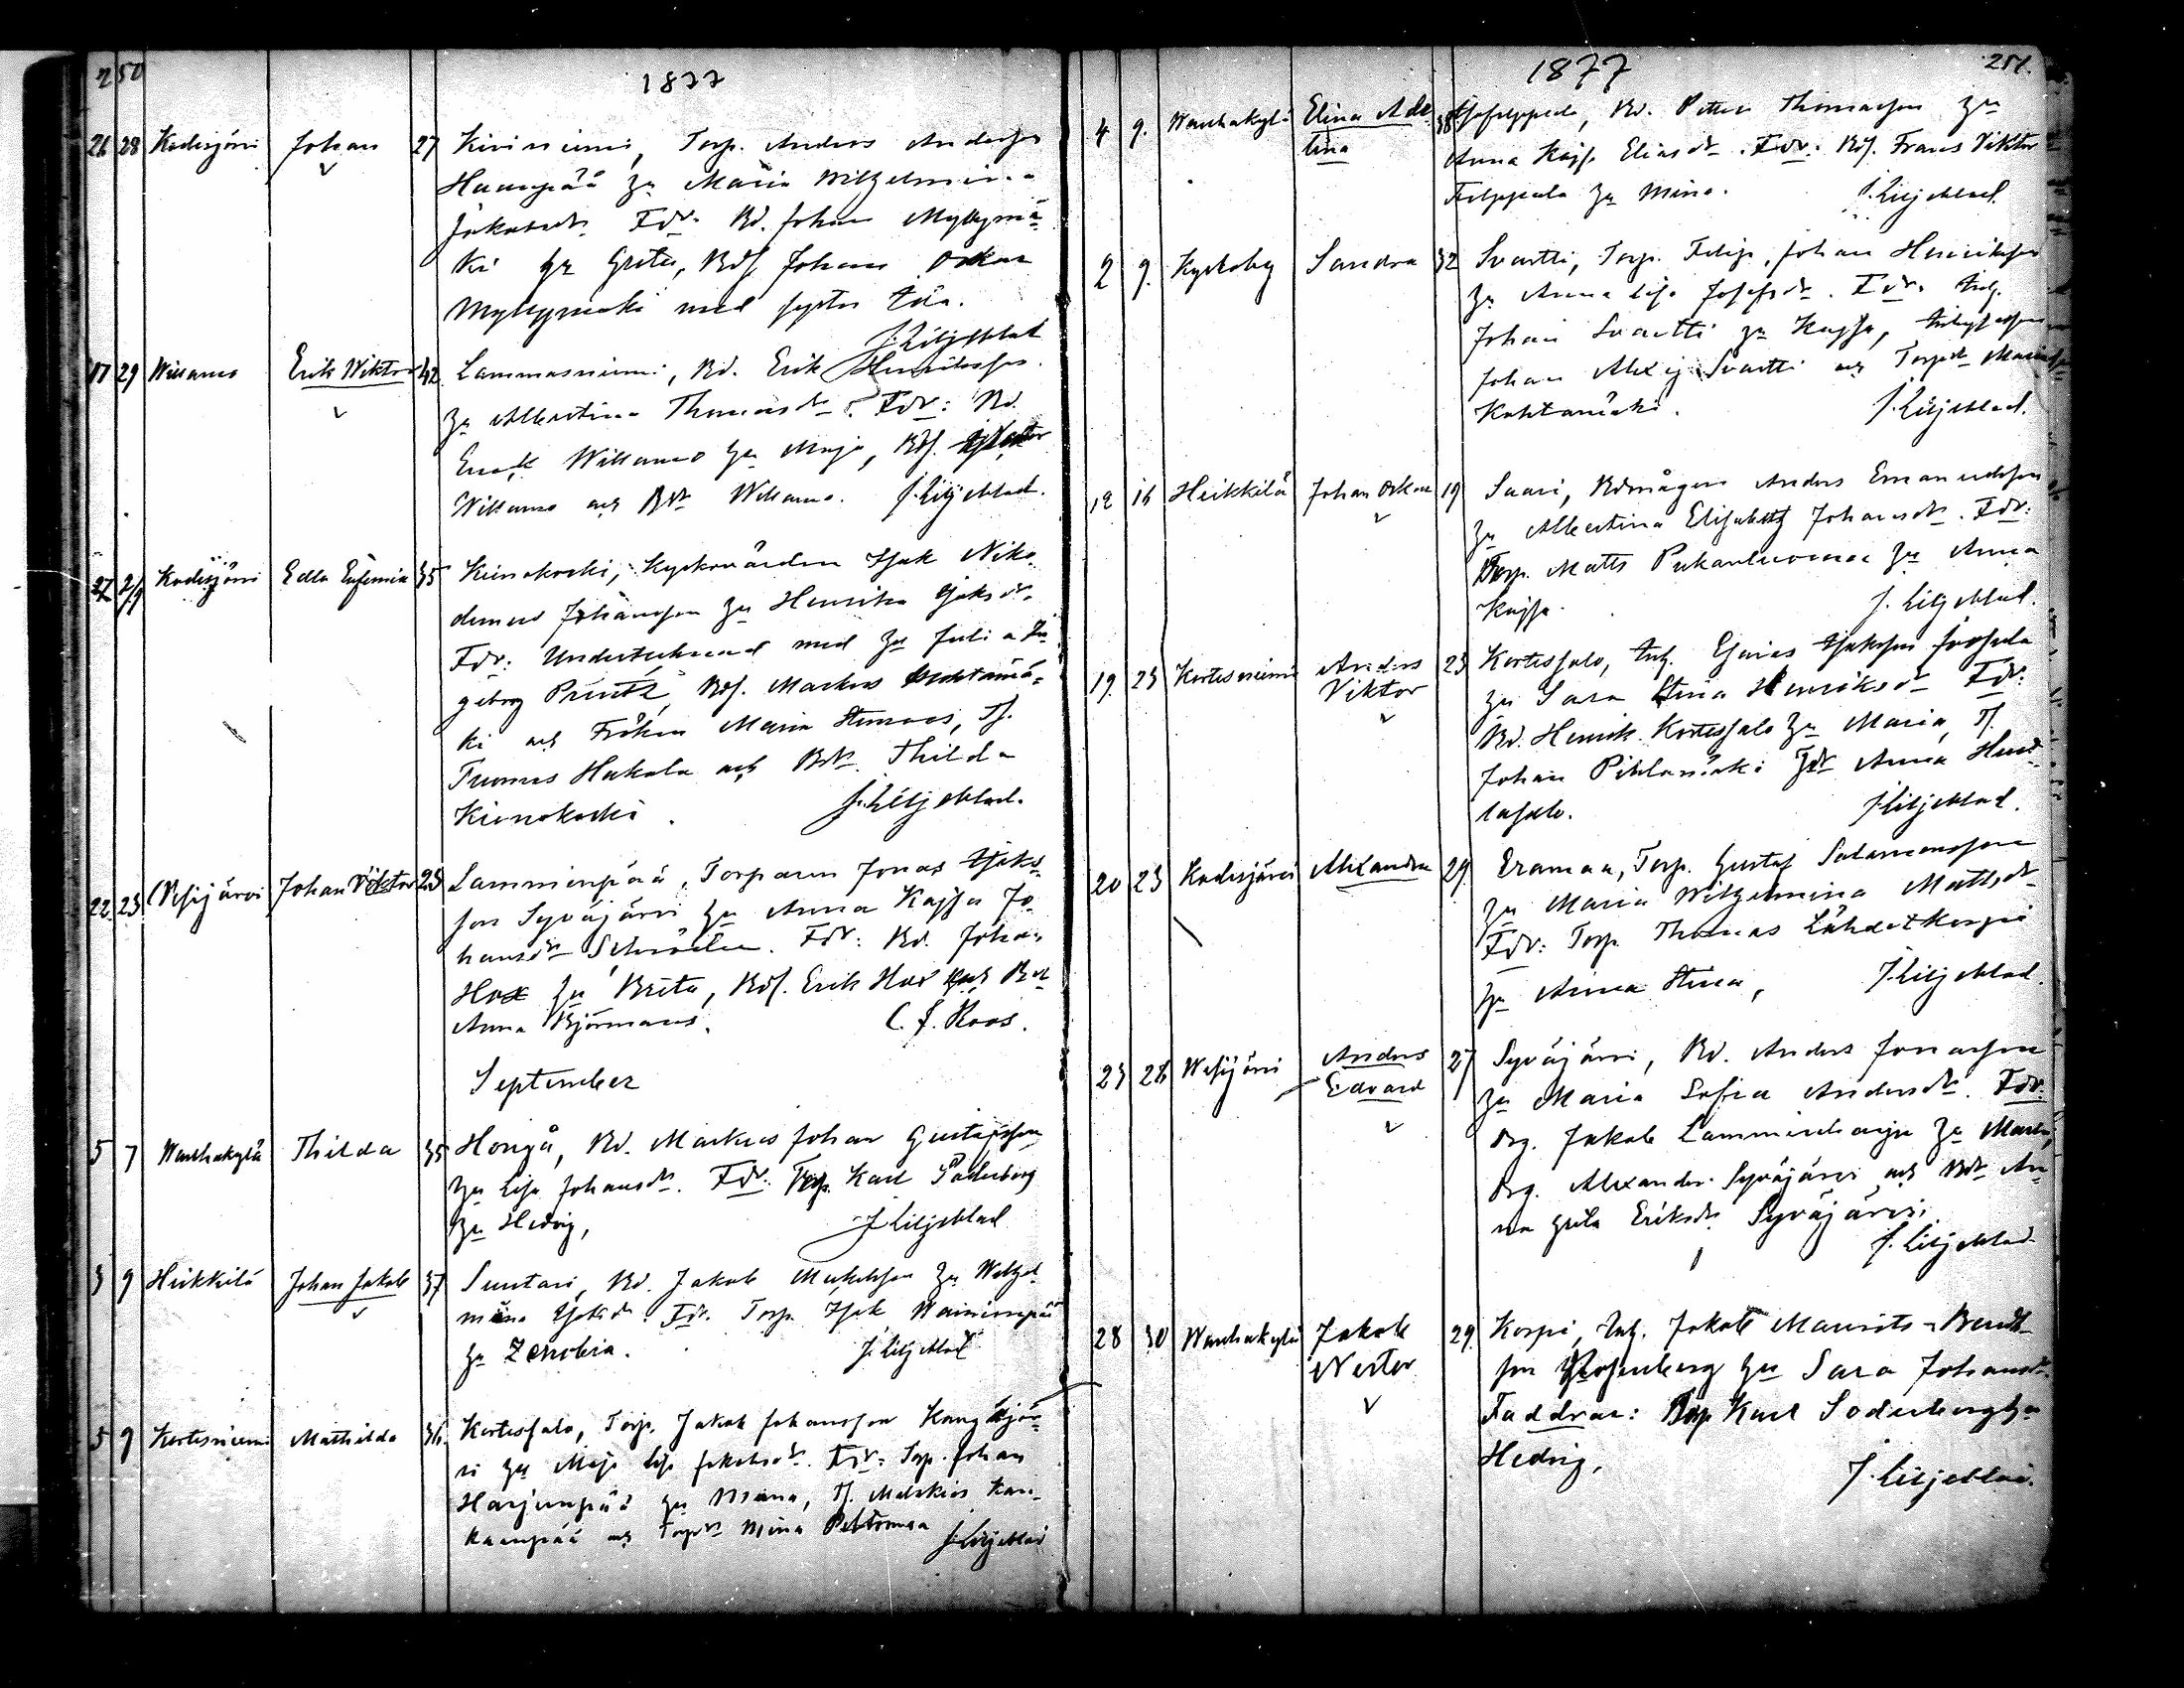 250
1877
26 28 Kodisjärvi Johan 27 Kiviniemi, Torp. Anders Andersson
Haanpää hu Maria Wilhelmina
Jakobsdr Fdr. Bd. Johan Myllymä-
ki hu Greta, Bds. Johan Oskar
Myllymäki med syster Ida.
J. Liljeblad
17 29 Wikamo Erik Wiktor 42 Lammasniemi, Bd. Erik Henriksson
hu Albertina Thomasdr. Fdr: Bd.
Wikamo hu Maja, Bds.
Wikamo och Bdr Wikamo. J. Liljeblad.
27 2/9 Kodisjärvi Edla Eufemia 35 Kienokoski, Kyrkovärden Isak Niko-
demus Johansson hu Henrika Isaksdr.
Fdr: Undertecknad med hu Julia In-
geborg Bds. Markus
ki och Fröken Maria
Tuomas Hakala och Bdr. Thilda
Kienokoski. J. Liljeblad.
22 23 Vesijärvi Johan Viktor 23 Lamminpää, Torparen Jonas Isaks-
son Syväjärvi hu Anna Kajsa Jo-
hansdr Fdr: Bd. Johan
Hox hu Brita, Bds. Erik Hox och Bdr
Anna Björnman. C. J. Roos.
September
5 7 Wanhakylä Thilda 35 Hongå, Bd. Markus Johan Gustafsson
hu Lisa Johansdr. Fdr. Torp. Karl Söderberg
hu Hedvig, J Liljeblad
3 9 Heikkilä Johan Jakob 37 Suntari, Bd. Jakob Mickelsson hu Wilhel-
mina Isaksdr. Fdr. Torp. Isak Wainionpää
hu Zenobia. J. Liljeblad
5 9 Kortesniemi Mathilda 36 Kortessalo, Torp. Jakob Johansson Kangasjär-
vi hu Maja Lisa Jakobsdr. Fdr: Torp. Johan
Harjunpää hu Mina, Malakias Kan-
kaanpää och Torpdr Mina
J. Liljeblad
251.
1877
4 9. Wanhakylä Elina Ade- 38 Bd. Petter Thomasson hu
lina Anna Kajsa Eliasdr. Fdr: Bds. Frans Viktor
Filppula hu Mina. J. Liljeblad.
2 9. Kyrkoby Sandra 32 Svartti, Torp. Filip Johan Henriksson
hu Anna Lisa Josefsdr. Fdr. Inh.
Johan Svartti hu Kajsa,
Johan Alexij Svartti och Torpdr Maria
Kohtamäki. J. Liljeblad.
12 16 Heikkilä Johan Oskar 19 Saari, Bdmågen Anders Emanuelsson
hu Albertina Elisabeth Johansdr. Fdr:
Torp. Matts Pukanluoma hu Anna
Kajsa. J. Liljeblad.
19. 23 Kortesniemi Anders 23 Kortessalo, Inh. Isaksson
Viktor hu Sara Stina Henriksdr Fdr:
Bd. Henrik Kortessalo hu Maria,
Johan Pihlamäki Anna
J. Liljeblad.
20 23 Kodisjärvi Alexandra 29. Eramaa, Torp. Gustaf Salomonsson
hu Maria Wilhelmina Mattsdr
Fdr: Torp. Thomas Lähdetkorpi
hu Anna Stina, J. Liljeblad.
23 28 Wesijärvi Anders 27 Syväjärvi, Bd. Anders Jonasson
Edvard hu Maria Sofia Andersdr. Fdr.
Drg. Jakob Lamminharju hu Maria,
Drg. Alexander Syväjärvi och Bdr An-
na Greta Eriksdr Syväjärvi
J. Liljeblad
28 30 Wanhakylä Jakob 29. Korpi, Inh. Jakob Maurits
Nestor son Rosenberg hu Sara Johansdr.
Faddrar: Torp Karl Söderberg hu
Hedvig, J. Liljeblad.